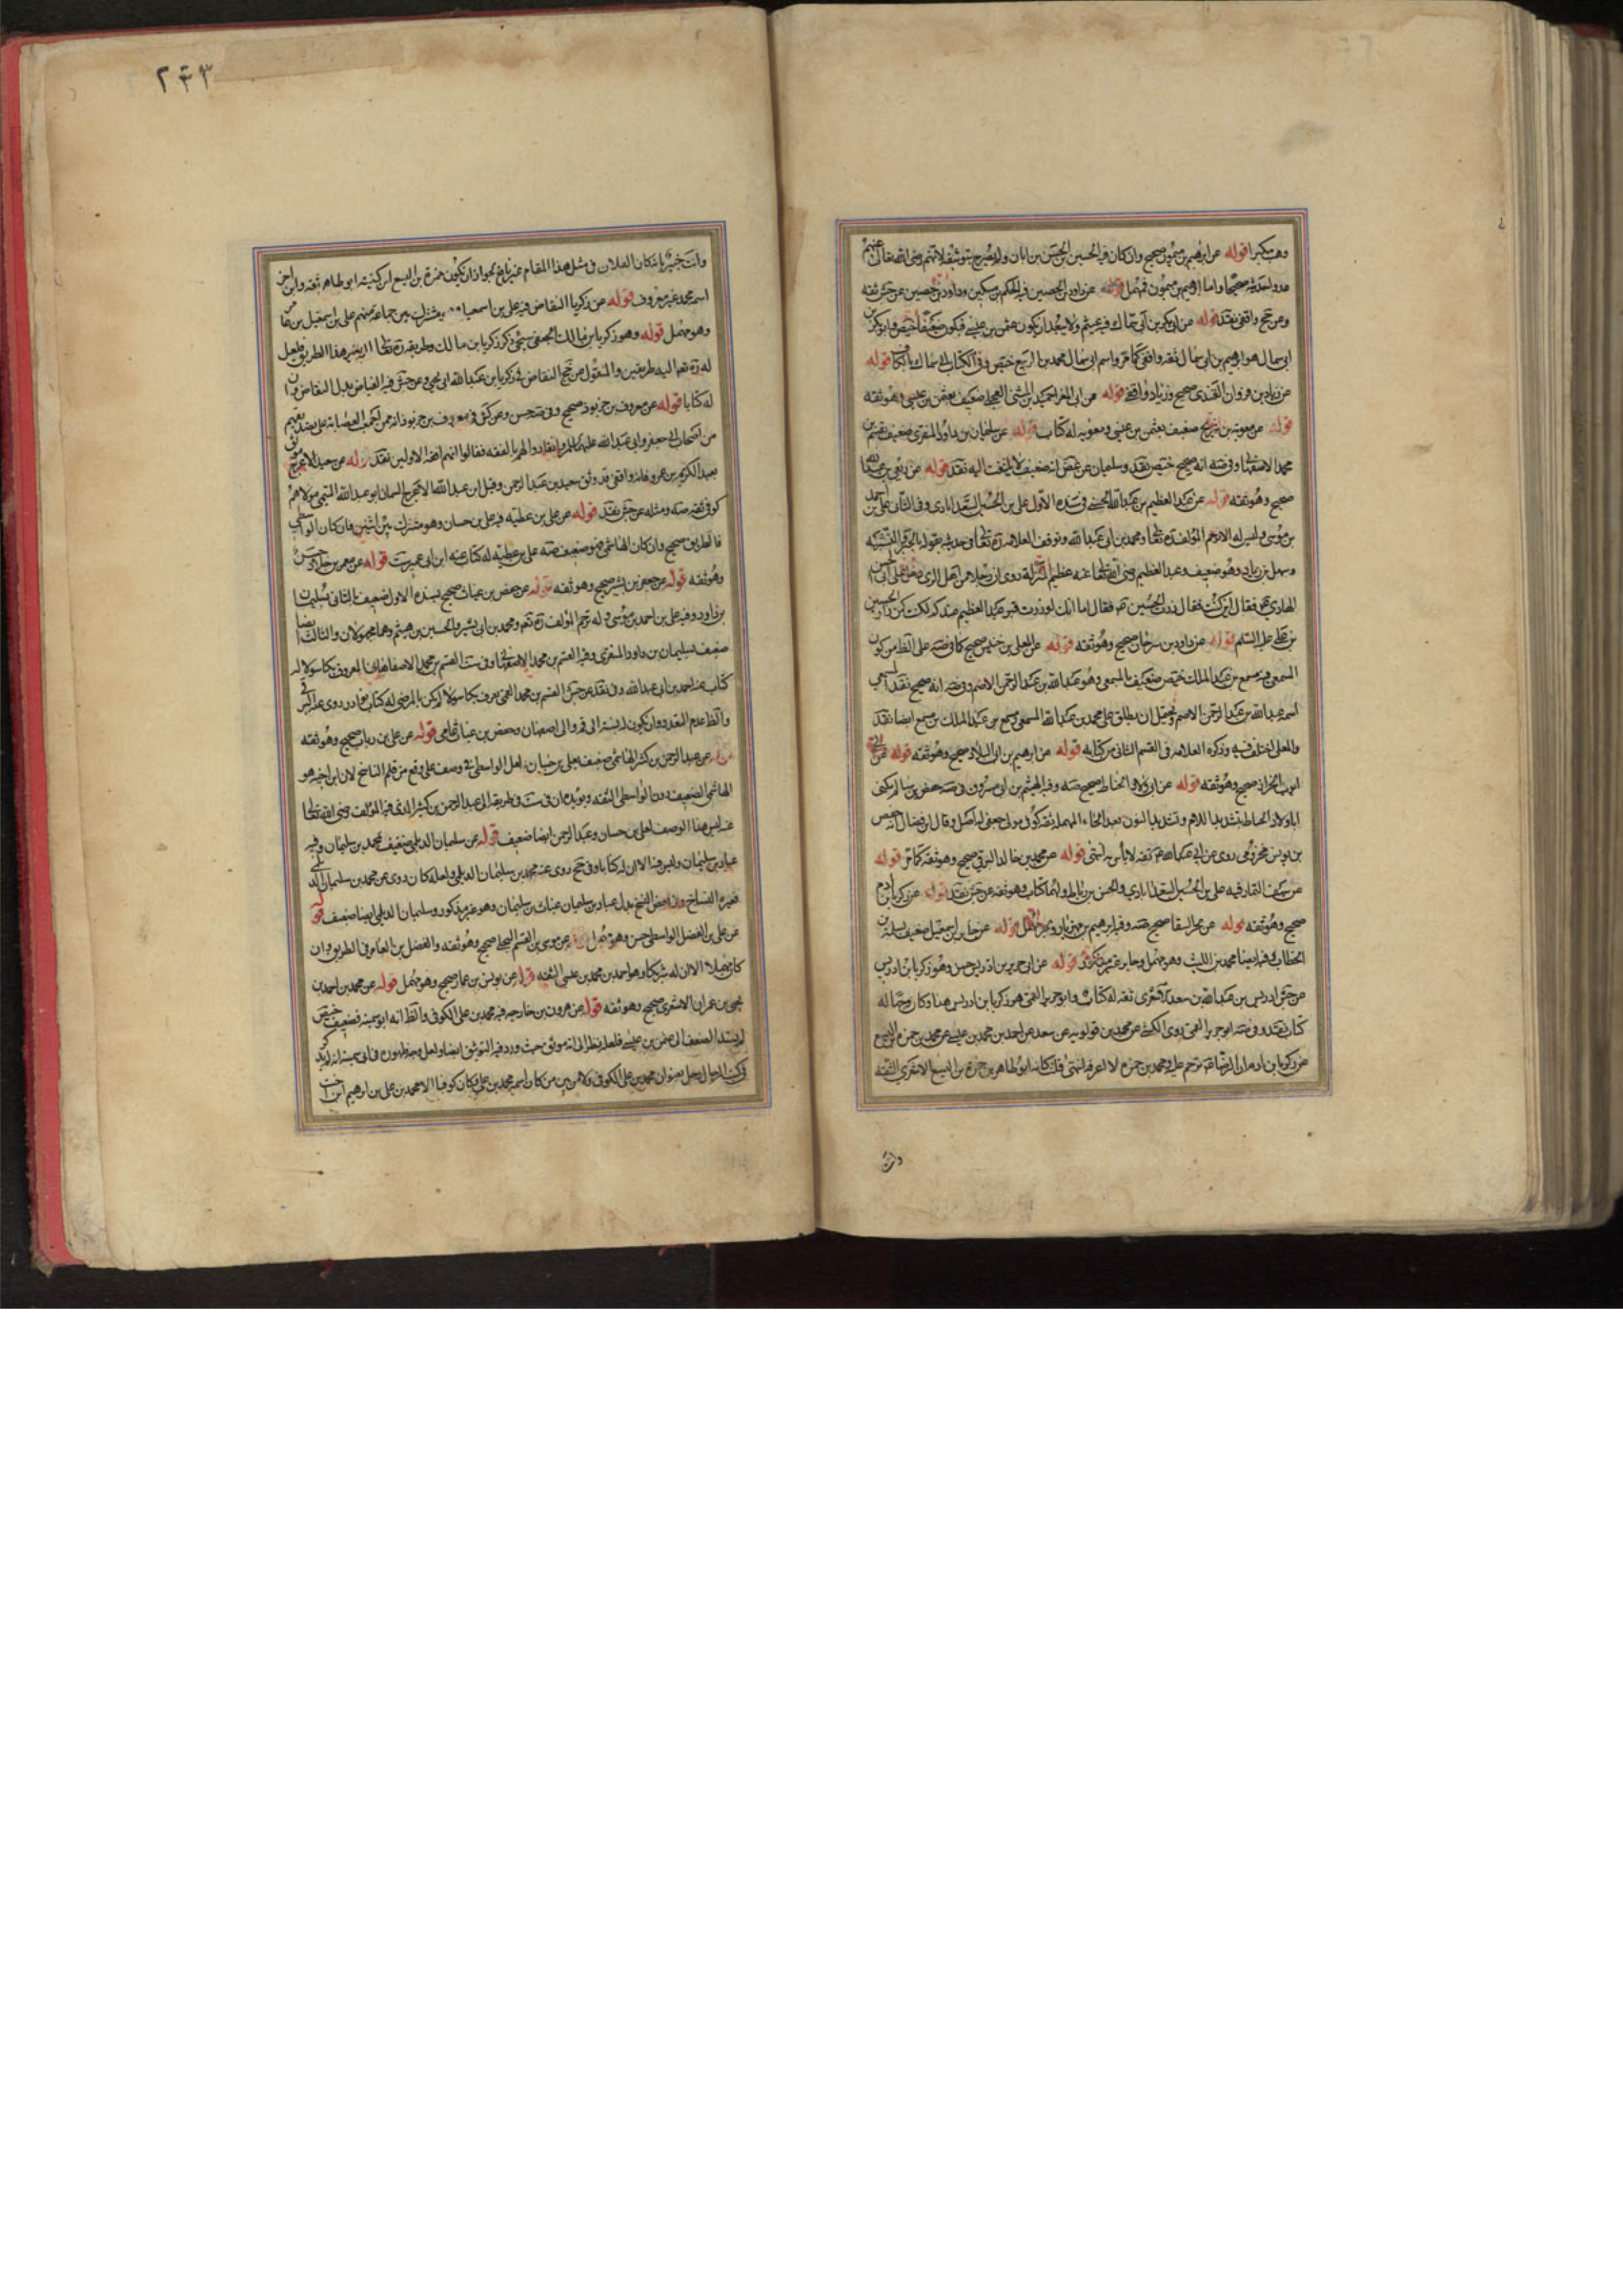 وهب مكبرا قوله عن ابرهيم بن ميمون صحيح وان كان فيه الحسين بن الحسن بن ابان ولم يصرح بتوثيقه لانهم رضى الله تعالى عنهم
عدوا حديثه صحيحا واما ابرهيم بن ميمون فمهمل قوله عن داود بن الحصين فيه الحكم بن مسكين وداود بن حصين عن جش ثقه
وعن جخ واقفى نقد قوله عن ابى بكر بن ابى سماك فيه عيثم ولا يبعد ان يكون عثمن بن عيسى فيكون ضعيفا
ابى سمال هو ابرهيم بن ابى سمال ثقه واقفى كما مر واسم ابى سمال محمد بن الربيع وفى الكتاب ابى سماك بالكاف قوله
عن زياد بن مروان القندى صحيح وزياد واقفى قوله عن ابى المغرا حميد بن المثنى العجلى ضعيف بعثمن بن عيسى وهو ثقه
قوله عن معويه بن شريح ضعيف بعثمن بن عيسى ومعويه له كتاب قوله عن سليمان بن داود المنقرى ضعيف بقسم بن
محمد الاصفهانى وفى صه انه صحيح نقد وسليمان عن غض انه ضعيف لا يلتفت اليه نقد قوله عن ربعى بن عبد الله
صحيح وهو ثقه قوله عن عبد العظيم بن عبد الله الحسنى فى سنده الاول على بن الحسين السعدابادى وفى الثانى على بن احمد
بن موسى وليس له الا ترحم المؤلف ره تعا ومحمد بن ابى عبد الله وتوقف العلامه ره تعا فى حديثه بقوله بالجبر والتشبيه
وسهل بن زياد وهو ضعيف وعبد العظيم رضى الله تعا عنه عظيم المنزلة روى ان رجلا من اهل الرى دخل على ابى الحسن
الهادى ع فقال اين كنت فقال زرت الحسين ع فقال اما انك لو زرت قبر عبد العظيم عندكم لكنت كمن زار الحسين
بن على عليه السلم قوله عن داود بن سرحان صحيح وهو ثقه قوله عن المعلى بن خنيس صحيح كما فى صه على الظاهر من كون
المسمعى فيه مسمع بن عبد الملك ضعيف بالمسمعى وهو عبد الله بن عبد الرحمن الاصم وفى صه انه صحيح نقد المسمعى
اسمه عبد الله بن عبد الرحمن الاصم ويحتمل ان يطلق على محمد بن عبد الله المسمعى ومسمع بن عبد الملك بن مسمع ايضا نقد
والمعلى اختلف فيه وذكره العلامه فى القسم الثانى من كتابه قوله عن ابرهيم بن ابى البلاد صحيح وهو ثقه قوله عن ابى
ايوب الخراز صحيح وهو ثقه قوله عن ابى ولاد الحناط صحيح صه وفيه الهيثم بن ابى مسروق فى صه حفص بن سالم يكنى
ابا ولاد الحناط بتشديد اللام وتشديد النون بعد الحاء المهمله ثقه كوفى مولى جعفى له اصل وقال ابن فضال انه حفص
بن يونس مخزومى روى عن ابى عبد الله ع ثقه لا باس به انتهى قوله عن محمد بن خالد البرقى صحيح وهو ثقه كما مر قوله
عن سيف التمار فيه على بن الحسين السعدابادى والحسن بن رباط ولهما كتاب وهو ثقه عن جش نقد قوله عن زكريا بن ادم
صحيح وهو ثقه قوله عن بحر السقا صحيح صه وفيه ابرهيم بن مهزيار وبحر مهمل قوله عن جابر بن اسمعيل ضعيف بسلمة بن
الخطاب وفيه ايضا محمد بن الليث وهو مهمل وجابر غير مذكور قوله عن ابى جرير بن ادريس حسن وهو زكريا بن ادريس
عن جش ادريس بن عبد الله بن سعد الاشعرى ثقه له كتاب وابو جرير القمى هو زكريا بن ادريس هذا وكان وجها له
كتاب نقد وفى صه ابو جرير القمى روى الكشى عن محمد بن قولويه عن سعد عن احمد بن محمد بن عيسى عن محمد بن حمزه بن اليسع
عن زكريا بن ادم ان الرضا ع ترحم عليه ومحمد بن حمزه لا اعرفه انتهى قلت كانه ابو طاهر بن حمزة بن اليسع الاشعرى الثقه
وانت
٢٤٣
وانت خبير بانه كان الفلان فى مثل هذا المقام غير نافع لجواز ان يكون حمزة بن اليسع ابن كنيته ابو طاهر ثقه وابن اخر
اسمه محمد غير معروف قوله عن زكريا النقاض فيه على بن اسمعيل يشترك بين جماعة منهم على بن اسمعيل بن عمار
وهو مهمل قوله وهو زكريا بن مالك الجعفى ذكر زكريا بن مالك وطريقه ره تعا اليه هذا الطريق فلعل
له ره تعا اليه طريقين والمنقول عن جخ النقاض فى زكريا بن عبد الله ابى يحيى وعن جش فيه الفياض بدل النقاض وان
له كتابا قوله عن معروف بن خربوذ صحيح وفى صه حسن وعن كش فى معروف بن خربوذ انه ممن اجمعت العصابة على تصديقهم
من اصحاب ابى جعفر وابى عبد الله عليهما السلم وانقادوا لهم بالفقه فقالوا انهم افقه الاولين نقد قوله عن سعيد الاعرج موثق
بعبد الكريم بن عمرو فانه واقفى قد وثق سعيد بن عبد الرحمن وقيل ابن عبد الله الاعرج السمان ابو عبد الله التيمى مولاهم
كوفى ثقه صه ومثله عن جش نقد قوله عن على بن عطيه فيه على بن حسان وهو مشترك بين اثنين فان كان الواسطى
فالطريق صحيح وان كان الهاشمى فهو ضعيف صه على بن عطيه له كتاب عنه ابن ابى عمير ست قوله عن معمر بن خلاد حسن
وهو ثقه قوله عن جعفر بن بشير صحيح وهو ثقه قوله عن حفص بن غياث صحيح بسنده الاول ضعيف بالثانى بسليمان
بن داود وفيه على بن احمد بن موسى وله ترحم المؤلف ره تعا ومحمد بن ابى بشر والحسين بن هيثم وهما مجهولان والثالث ايضا
ضعيف بسليمان بن داود المنقرى وفيه القسم بن محمد الاصفهانى وفى ست القسم بن محمد الاصفهانى المعروف بكاسولا له
كتاب عنه احمد بن ابى عبد الله وفى نقد عن جش القسم بن محمد القمى يعرف بكاسولا لم يكن بالمرضى له كتاب نوادر روى عنه البرقى
والظ عدم التعدد وان يكون له نسبة الى قم والى اصفهان وحفص بن غياث عامى قوله عن على بن رباب صحيح وهو ثقه
قوله عن عبد الرحمن بن كثير الهاشمى ضعيف بعلى بن حسان ولعل الواسطى فى وصف على وقع من قلم الناسخ لان ابن اخيه هو
الهاشمى الضعيف دون الواسطى الثقه ويؤيده ان فى ست فى طريقه الى عبد الرحمن بن كثير الذى فيه المؤلف رضى الله تعا
عنه ليس هذا الوصف لعلى بن حسان وعبد الرحمن ايضا ضعيف قوله عن سليمان الديلمى ضعيف بمحمد بن سليمان وفيه
عباد بن سليمان وليس فيه الا ان له كتابا وفى جخ روى عنه محمد بن سليمان الديلمى ولعله كان روى عن محمد بن سليمان الديلمى
فغيره النساخ وفى بعض النسخ بدل عباد بن سليمان عنان بن سليمان وهو غير مذكور وسليمان الديلمى ايضا ضعيف قوله
عن على بن الفضل الواسطى حسن وهو مهمل قوله عن موسى بن القسم البجلى صحيح وهو ثقه والفضل بن العامر فى الطريق وان
كان مهملا الا ان له شريكا وهو احمد بن محمد بن عيسى الثقه قوله عن يونس بن عمار صحيح وهو مهمل قوله عن محمد بن احمد بن
يحيى بن عمران الاشعرى صحيح وهو ثقه قوله عن هرون بن خارجه فيه محمد بن على الكوفى والظ انه ابو سمينه فضعيف